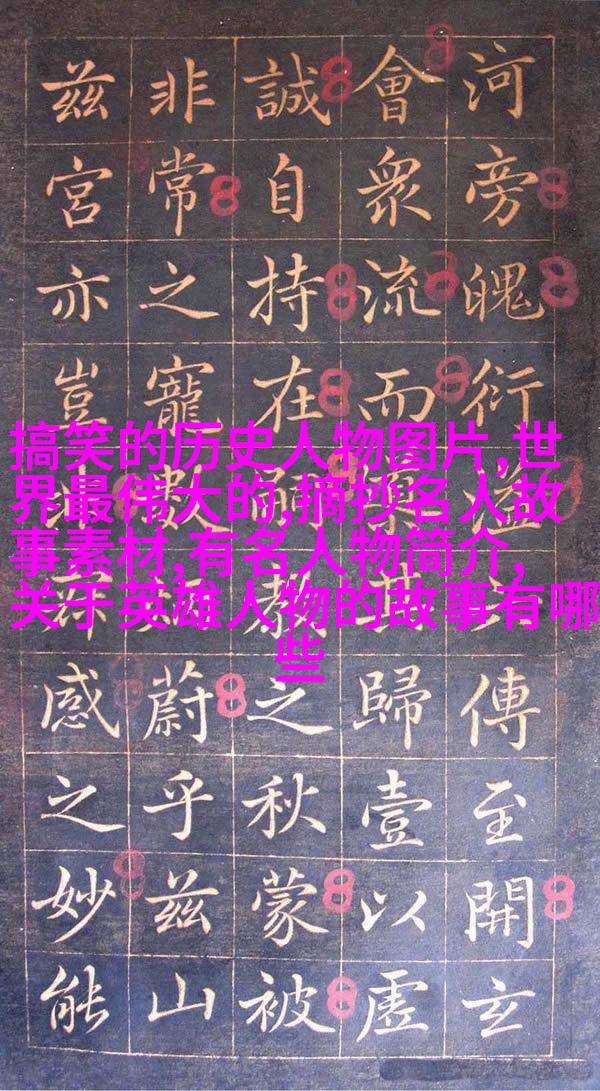 河旁魄衍溢傳至開玄
會眾流而歸壹以虛
誠自持在教之秋蒙被
非常之寵數蔚乎茲山
茲宮亦豈感之妙能
搞笑的历史人物图片,世
界最伟大的,摘抄名人故
事素材,有名人物简介,
关于英雄人物的故事有哪
些